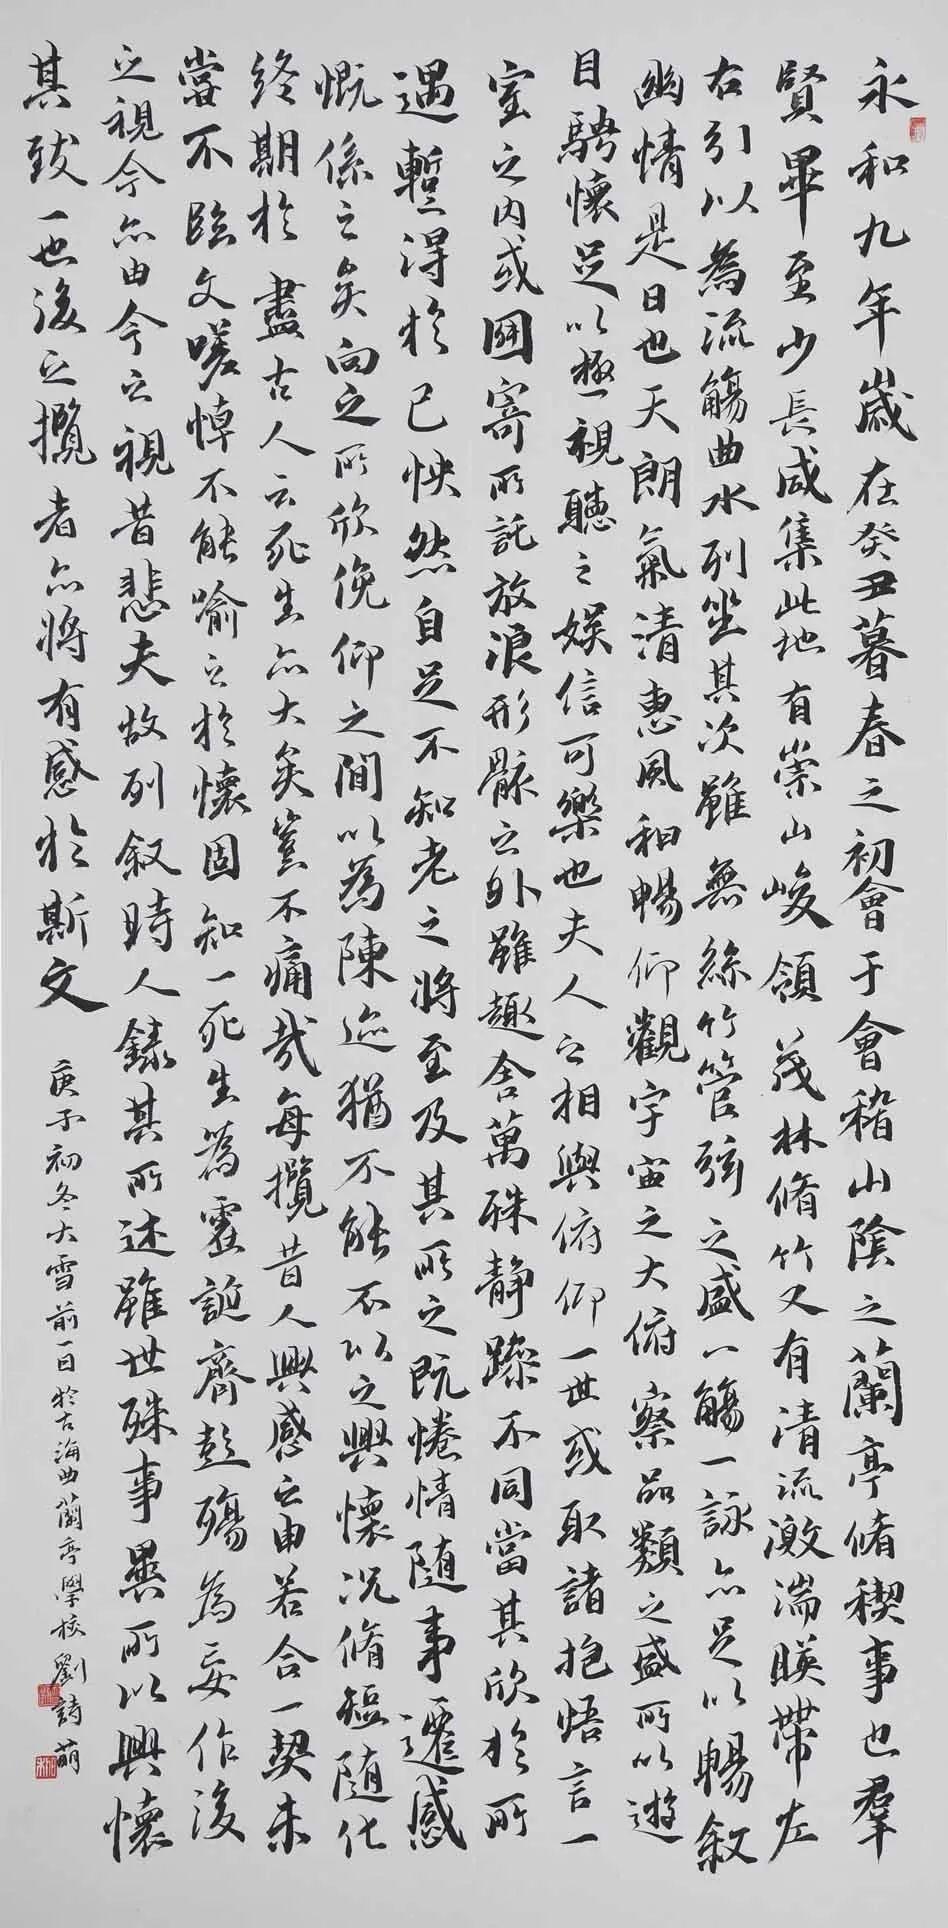 永和九年歲在癸丑暮春之初會于會稽山陰之蘭亭脩稧事也羣
賢畢至少長咸集此地有崇山峻領茂林脩竹又有清流激湍暎帶左
右引以為流觴曲水列坐其次雖無絲竹管弦之盛一觴一詠亦足以暢叙
幽情是日也天朗氣清惠風和暢仰觀宇宙之大俯察品類之盛所以遊
目騁懷足以極視聽之娛信可樂也夫人之相與俯仰一世或取諸抱悟言一
室之內或因寄所託放浪形骸之外雖趣舍萬殊静躁不同當其欣於所
遇暫得於己怏然自足不知老之將至及其所之既惓情隨事遷感
慨係之矣向之所欣俛仰之閒以為陳迹猶不能不以之興懷況脩短隨化
終期於盡古人云死生亦大矣豈不痛哉每攬昔人興感之由若合一契未
嘗不臨文嗟悼不能喻之於懷固知一死生為虛誕齊彭殤為妄作後
之視今亦由今之視昔悲夫故列叙時人錄其所述雖世殊事異所以興懷
其致一也後之攬者亦將有感於斯文
庚子初冬大雪前一日於古海曲蘭亭學校劉詩萌